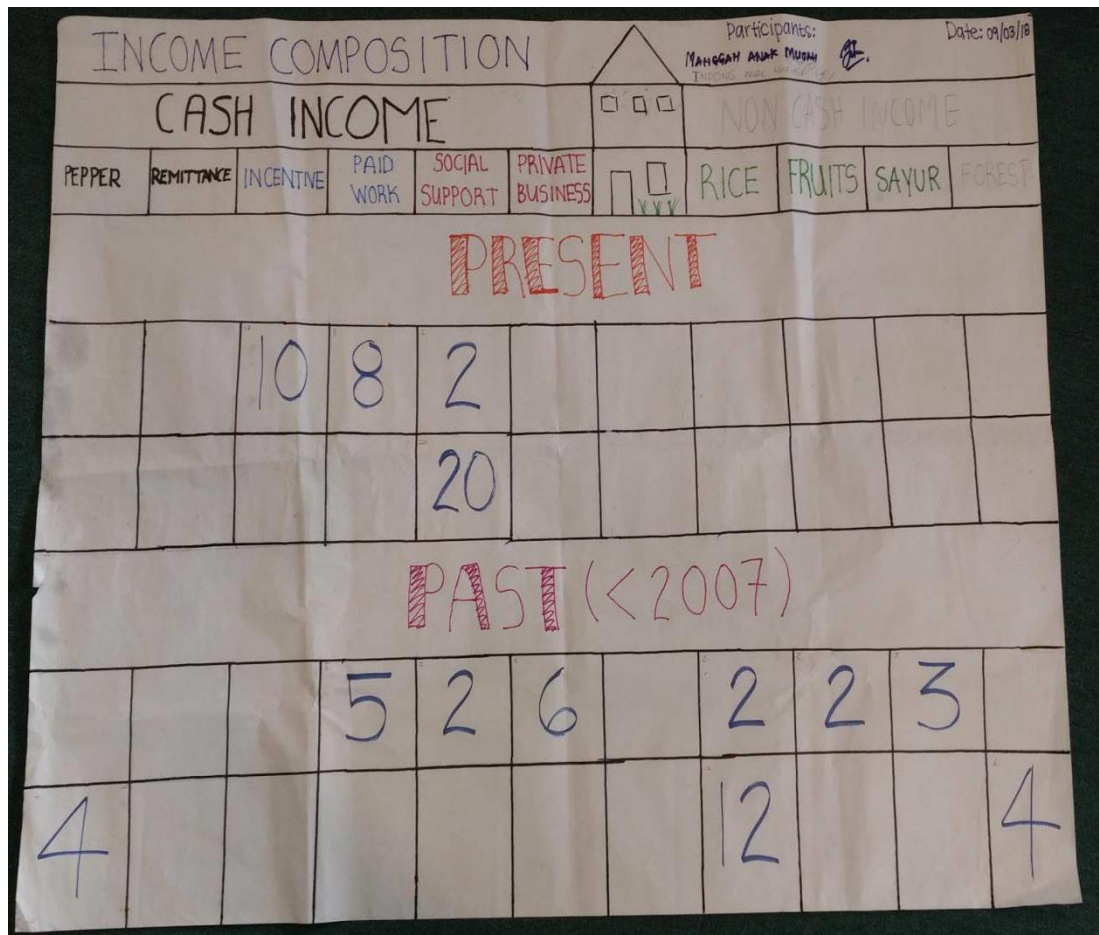 INCOME COMPOSITION
Participants:
Date: 09/03/18
MANGGAH ANAK
CASH INCOME
NON CASH INCOME
PEPPER REMITTANCE INCENTIVE PAID WORK SOCIAL SUPPORT PRIVATE BUSINESS RICE FRUITS SAYUR FOREST
PRESENT
10 8 2
20
PAST (<2007)
5 2 6 2 2 3
4 12 4